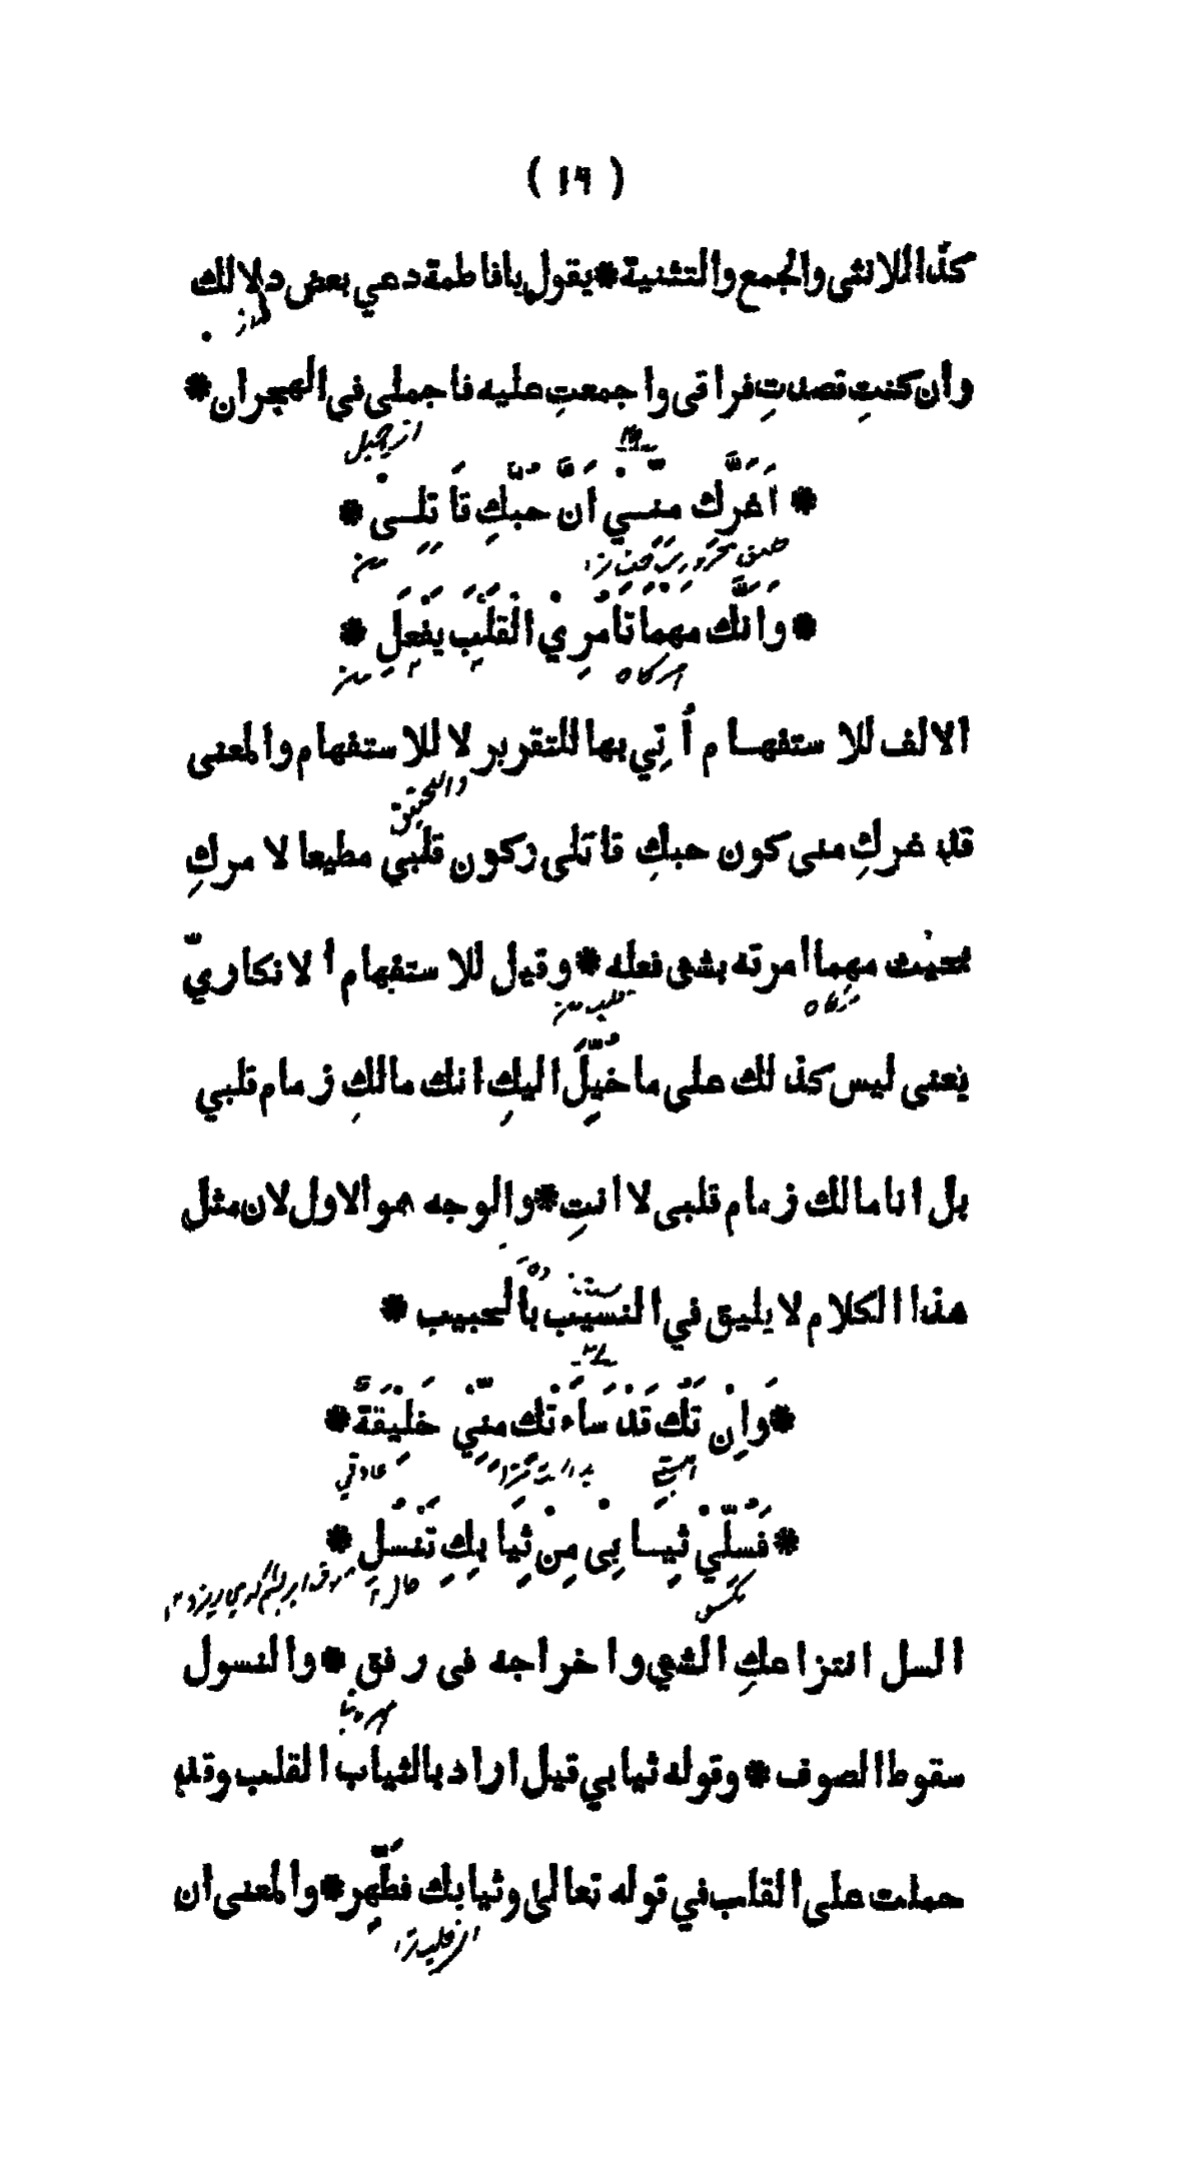 ( ۱۹ )
كذا للانثى والجمع والتثنية * يقول يا فاطمة دعي بعض دلالك
وان كنتِ قصدتِ فراقى واجمعتِ عليه فاجملى فى الهجران *
* اَغَرَّكِ مِنِّيْ اَنَّ حُبَّكِ قَاتِلِىْ *
* وَاَنَّكِ مَهْمَا تَأمُرِيْ الْقَلْبَ يَفْعَلِ *
الالف للاستفهام أُتِي بها للتقرير لا للاستفهام والمعنى
قد غركِ منى كون حبكِ قاتلى وكون قلبي مطيعا لامركِ
بحيث مهما امرته بشى فعله * وقيل للاستفهام الانكاريّ
يعنى ليس كذلك على ما خُيِّلَ اليكِ انك مالكِ زمام قلبي
بل انا مالك زمام قلبى لا انتِ * والوجه هو الاول لان مثل
هذا الكلام لا يليق في النسيب بالحبيب *
* وَاِنْ تَكُ قَدْ سَاَءتْكِ مِنِّيْ خَلِيْقَةٌ *
* فَسُلِّيْ ثِيَابِىْ مِنْ ثِيَابِكِ تَنْسُلِ *
السل انتزاعكِ الشي واخراجه فى رفق * والنسول
سقوط الصوف * وقوله ثيابي قيل اراد بالثياب القلب وقد
حملت على القلب في قوله تعالى وثيابك فَطَهِّر * والمعنى ان